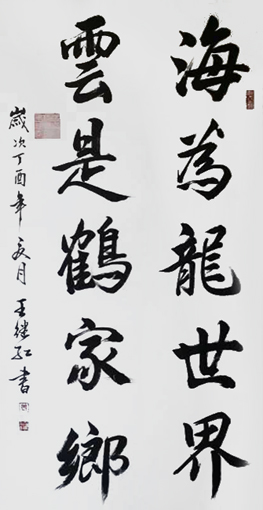 海為龍世界
雲是鶴家鄉
歲次丁酉年亥月王继红書